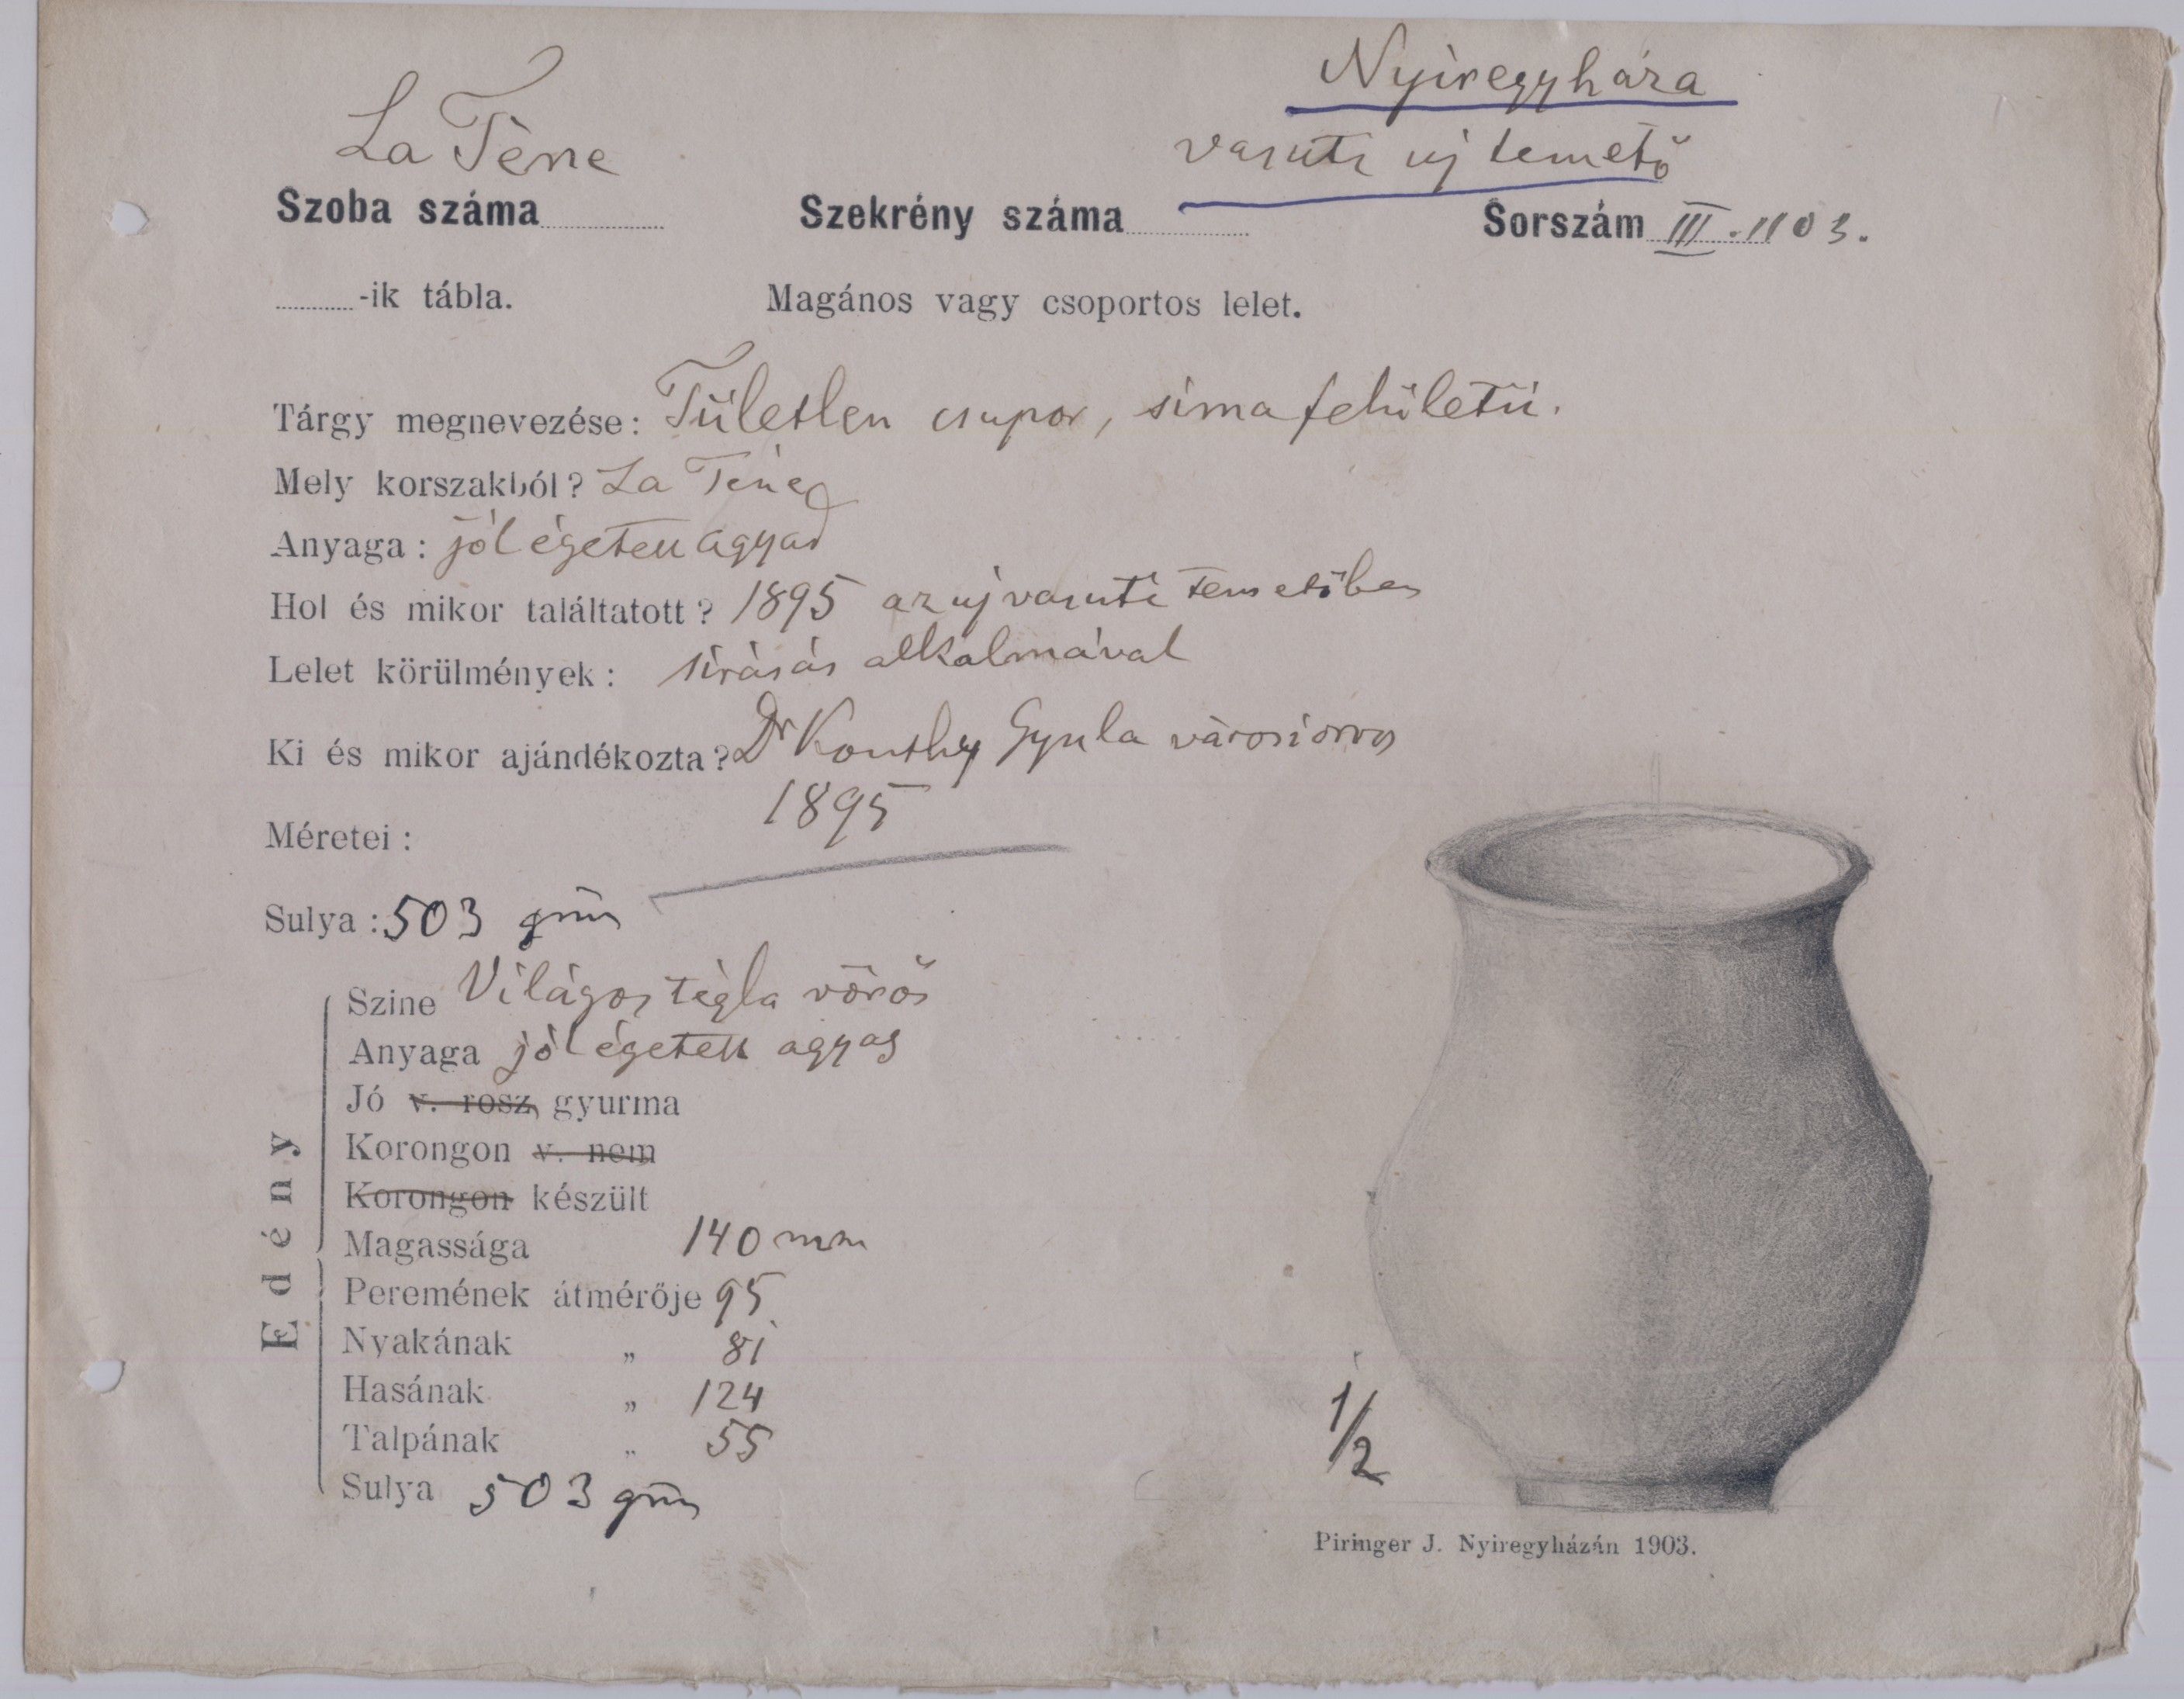 La Tène
Nyíregyháza
vasuti uj temető
Szoba száma
Szekrény száma
Sorszám III. 1103.
-ik tábla.
Magános vagy csoportos lelet.
Tárgy megnevezése: Fületlen csupor, sima felületü.
Mely korszakból? La Tène
Anyaga: jól égetett agyag
Hol és mikor találtatott? 1895 az uj vasuti temetőben
Lelet körülmények: sírásás alkalmával
Ki és mikor ajándékozta? Dr Gyula városi orvos
1895
Méretei:
Sulya: 503 grm
Edény
Szine Világos tégla vörös
Anyaga jól égetett agyag
Jó v. rosz gyurma
Korongon v. nem
Korongon készült
Magassága 140 mm
Peremének átmérője 95
Nyakának „ 81
Hasának „ 124
Talpának „ 55
Sulya 503 grm
1/2
Piringer J. Nyiregyházán 1903.